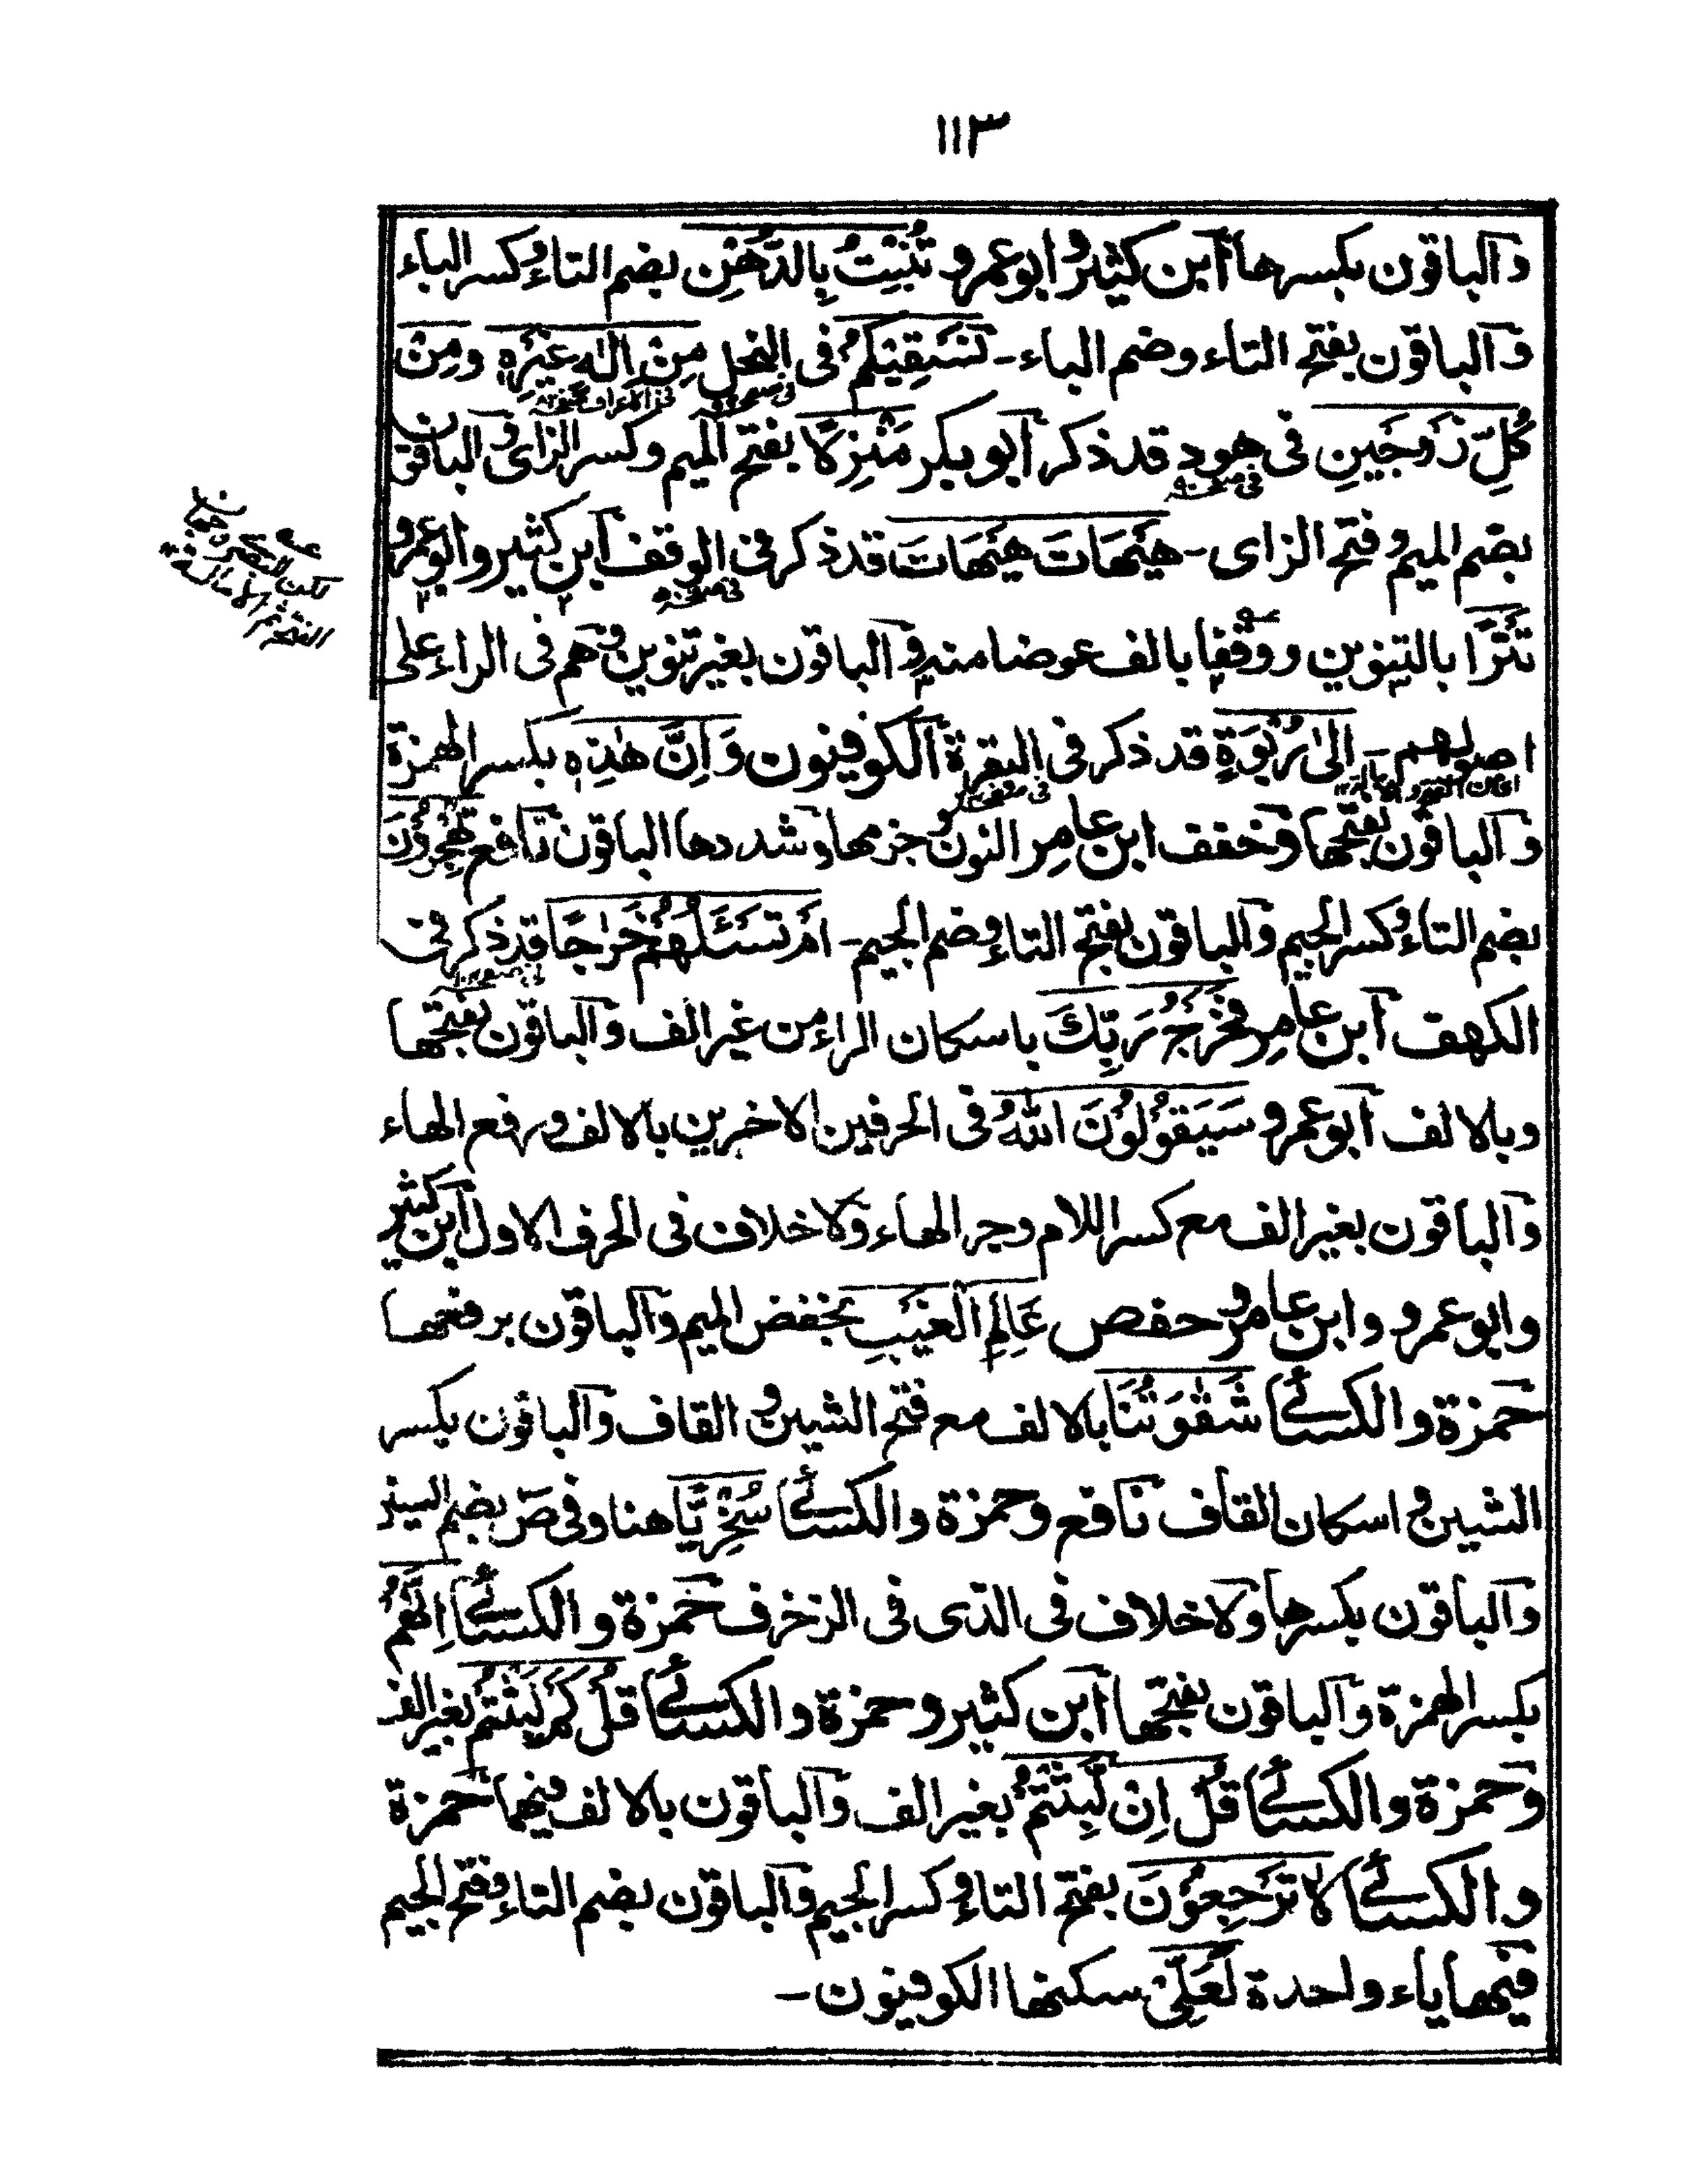 ١١٣
والباقون بكسرها ابن كثير وابو عمرو تُنْبِتُ بِالدُّهْنِ بضم التاء وكسر الباء
والباقون بفتح التاء وضم الباء - نُسْقِيْكُمْ فى النحل مِنْ اِلٰهٍ غَيْرُهٗ ومِنْ
كُلٍّ زَوْجَيْنِ فى هود قد ذكر ابو بكر مَنْزِلًا بفتح الميم وكسر الزاى والباقون
بضم الميم وفتح الزاى - هَيْهَاتَ هَيْهَاتَ قد ذكر فى الوقف ابن كثير وابو عمرو
تَتْرًا بالتنوين ووقفا بالف عوضا منه والباقون بغير تنوين وهم فى الراء على
اصولهم - اِلىٰ رَبْوَةٍ قد ذكر فى البقرة الكوفيون وَاِنَّ هٰذِهٖ بكسر الهمزة
والباقون بفتحها وخفف ابن عامر النون جزمها وشددها الباقون نافع تُهْجِرُوْنَ
بضم التاء وكسر الجيم والباقون بفتح التاء وضم الجيم - اَمْ تَسْئَلُهُمْ خَرْاجًا قد ذكر فى
الكهف ابن عامر فَخَرْجُ رَبِّكَ باسكان الراء من غير الف والباقون بفتحها
وبالالف ابو عمرو سَيَقُوْلُوْنَ اللّٰهُ فى الحرفين الاخرين بالالف ورفع الهاء
والباقون بغير الف مع كسر اللام وجر الهاء ولا خلاف فى الحرف الاول ابن كثير
وابو عمرو وابن عامر وحفص عَالِمِ الْغَيْبِ بخفض الميم والباقون برفعها
حمزة والكسائى شَقٰوَتُنَا بالالف مع فتح الشين والقاف والباقون بكسر
الشين واسكان القاف نافع وحمزة والكسائى سُخْرِيًّا هنا وفى صٓ بضم السين
والباقون بكسرها ولا خلاف فى الذى فى الزخرف حمزة والكسائى اِنَّهُمْ
بكسر الهمزة والباقون بفتحها ابن كثير وحمزة والكسائى قُلْ كَمْ لَبِثْتُمْ بغير الف
وحمزة والكسائى قُلْ اِنْ لَّبِثْتُمْ بغير الف والباقون بالالف فيهما حمزة
والكسائى لَا تَرْجِعُوْنَ بفتح التاء وكسر الجيم والباقون بضم التاء وفتح الجيم
فيها ياء واحدة لَعَلِّىْ سكنها الكوفيون -